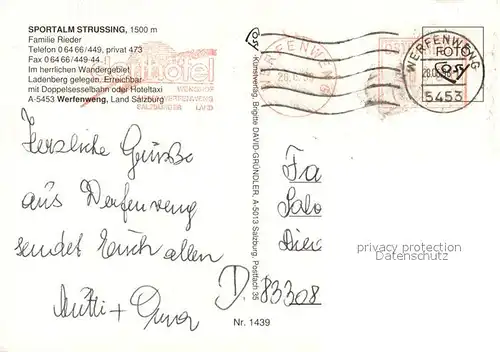 SPORTALM STRUSSING, 1500 m
Familie Rieder
Telefon 0 64 66/449, privat 473
Fax 0 64 66/449-44
Im herrlichen Wandergebiet
Ladenberg gelegen. Erreichbar
mit Doppelsesselbahn oder Hoteltaxi
A-5453 Werfenweng, Land Salzburg
Herzliche Grüsse
aus Werfenweng
sendet Euch allen
Mutti +
Nr. 1439
Kunstverlag, Brigitte DAVID-GRÜNDLER, A-5013 Salzburg, Postfach 35
WERFENWENG
WERFENWENG
5453
FOTO
Fa
Salo
privacy protection
Datenschutz
D. 83308